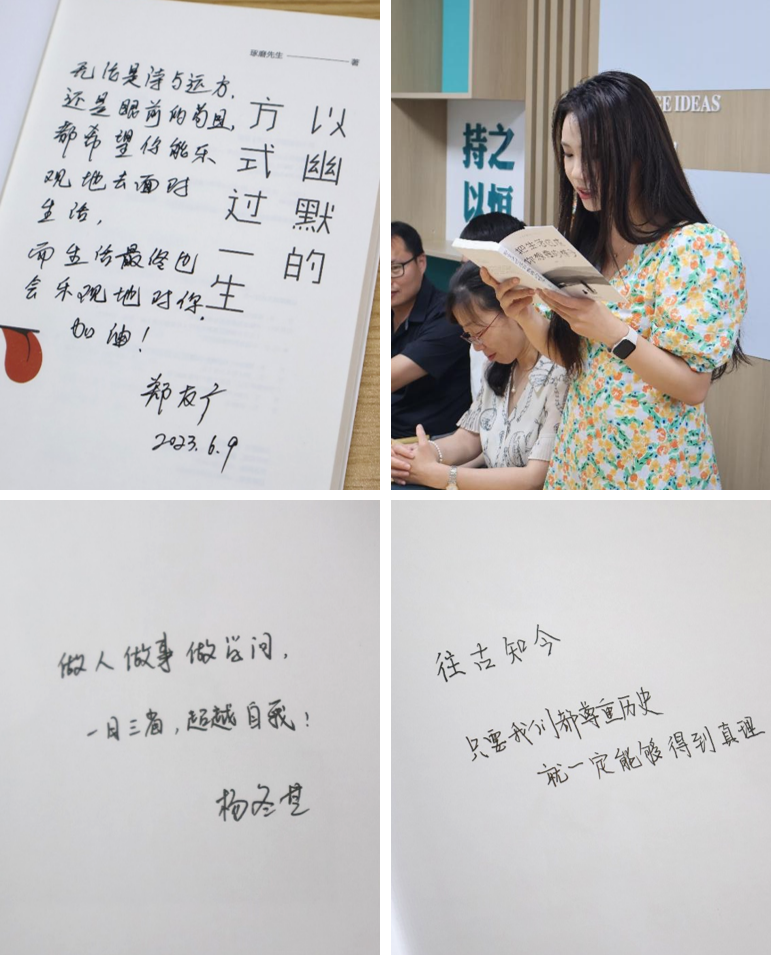 琢磨先生 —— 著
以幽默的
方式过一生
无论是诗与远方,
还是眼前的苟且,
都希望你能乐
观地去面对
生活,
而生活最终也
会乐观地对你.
加油!
郑友广
2023.6.9
CE IDEAS
持之
以恒
做人做事做学问,
一日三省,超越自我!
往古知今
只要我们都尊重历史
就一定能够得到真理